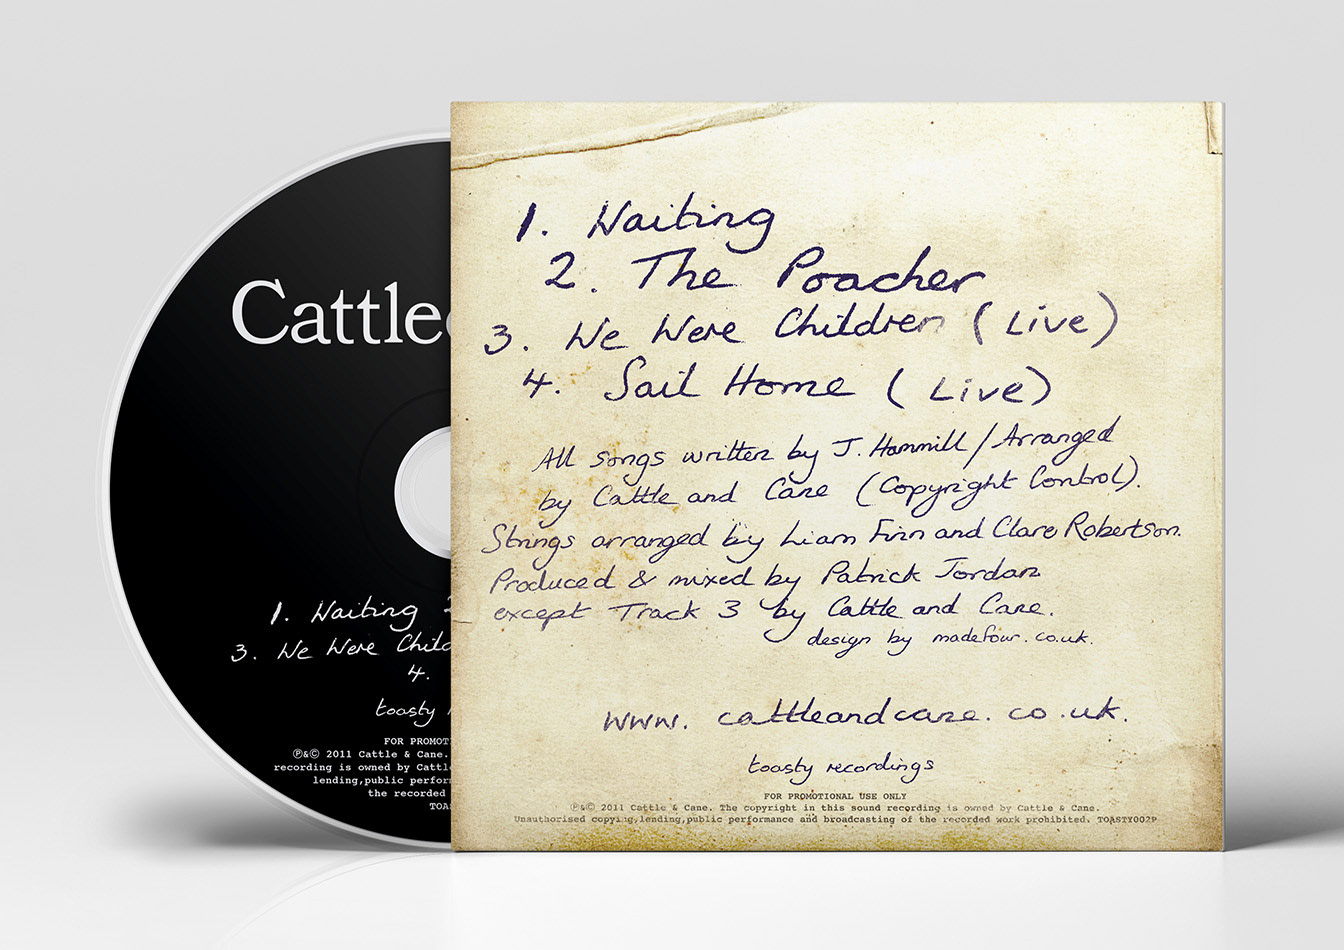 Cattle
1. Waiting
3. We Were Child
4.
toasty
FOR PROMOT
℗&© 2011 Cattle & Cane.
recording is owned by Cattl
lending,public perfor
the recorded
TOA
1. Waiting
2. The Poacher
3. We Were Children (Live)
4. Sail Home (Live)
All songs written by J. Hammill/Arranged
by Cattle and Cane (Copyright Control).
Strings arranged by Liam Finn and Clare Robertson.
Produced & mixed by Patrick Jordan
except Track 3 by Cattle and Cane.
design by madefour.co.uk.
www.cattleandcane.co.uk.
toasty recordings
FOR PROMOTIONAL USE ONLY
℗&© 2011 Cattle & Cane. The copyright in this sound recording is owned by Cattle & Cane.
Unauthorised copying,lending,public performance and broadcasting of the recorded work prohibited. TOASTY002P